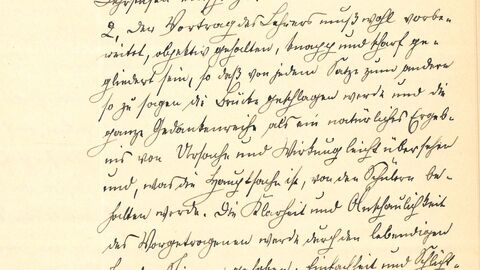 2, Der Vortrag des Lehrers muß wohl vorbe-
reitet, objektiv gehalten, knapp und scharf ge-
gliedert sein, so daß von jedem Satze zum andern
so zu sagen die Brücke geschlagen werde und die
ganze Gedankenreihe als ein natürliches Ergeb-
nis von Ursache und Wirkung leicht übersehen
und, was die Hauptsache ist, von den Schülern be-
halten werde. Die Klarheit und Anschaulichkeit
des Vorgetragenen werde durch den lebendigen
gehoben, Einfachheit und Schlicht-